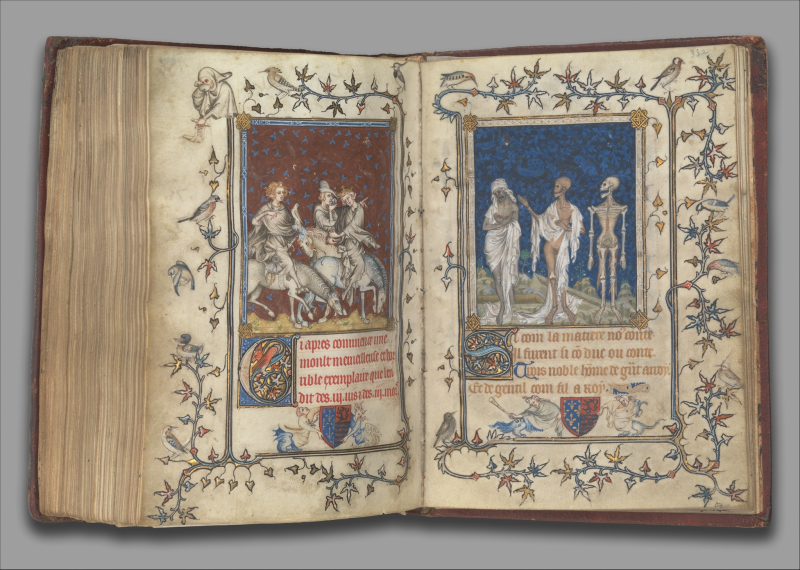 Ci apres commence une
moult merueilleuse et hor
rible exemplaire que len
dit des .iii. uis & des .iii. mors
Si com la matiere nos conte
Il furent si cō duc ou conte.
Trois noble hōme de gñt arroy.
Et de gentil com fil a roy.